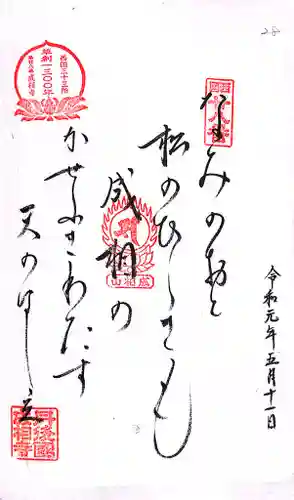 28
令和元年五月十一日
西国
廿八番
なみのおと
松のひゞきも
成相の
成相山
かぜふきわたす
天のはし立
西国三十三所
草創一三〇〇年
成相寺
丹後國
成相寺